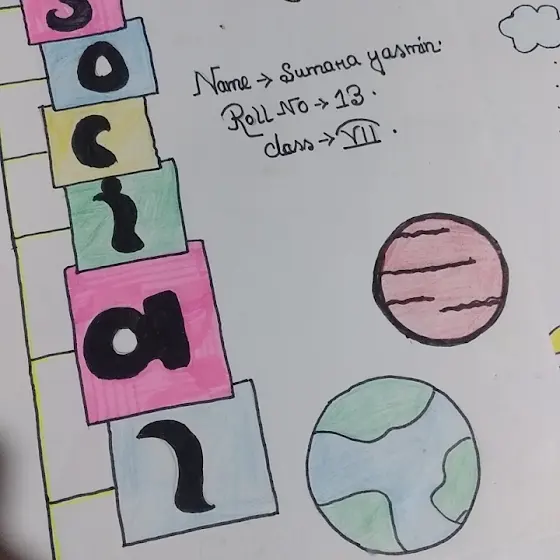 Social
Name → Sumana yasmin.
Roll No → 13.
class → VII.